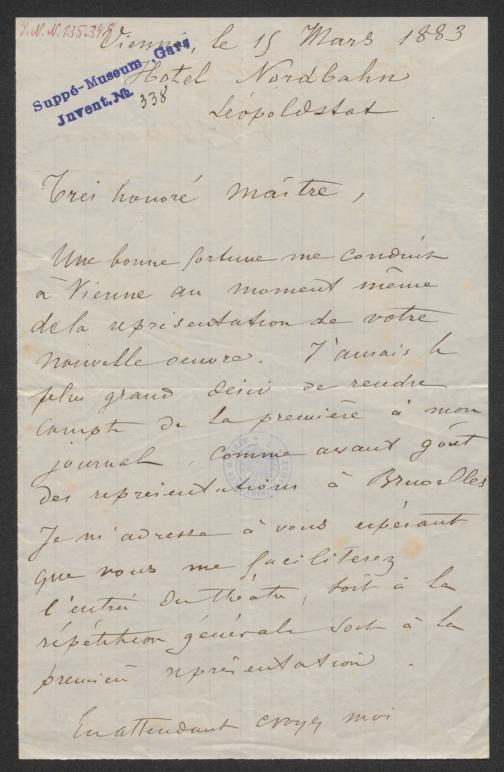 I. N. N. 135.348
Vienne, le 15 Mars 1883
Suppé-Museum Gars
Juvent. No. 338
Hotel Nordbahn
Léopoldstat
Très honoré maître,
Une bonne fortune me conduit
à Vienne au moment même
de la représentation de votre
nouvelle oeuvre. J'aurais le
plus grand désir de rendre
compte de la première à mon
journal, comme avant goût
des représentations à Bruxelles
Je m'adresse à vous espérant
que vous me faciliterez
l'entrée du théâtre, soit à la
répétition générale soit à la
première représentation.
En attendant croyez moi